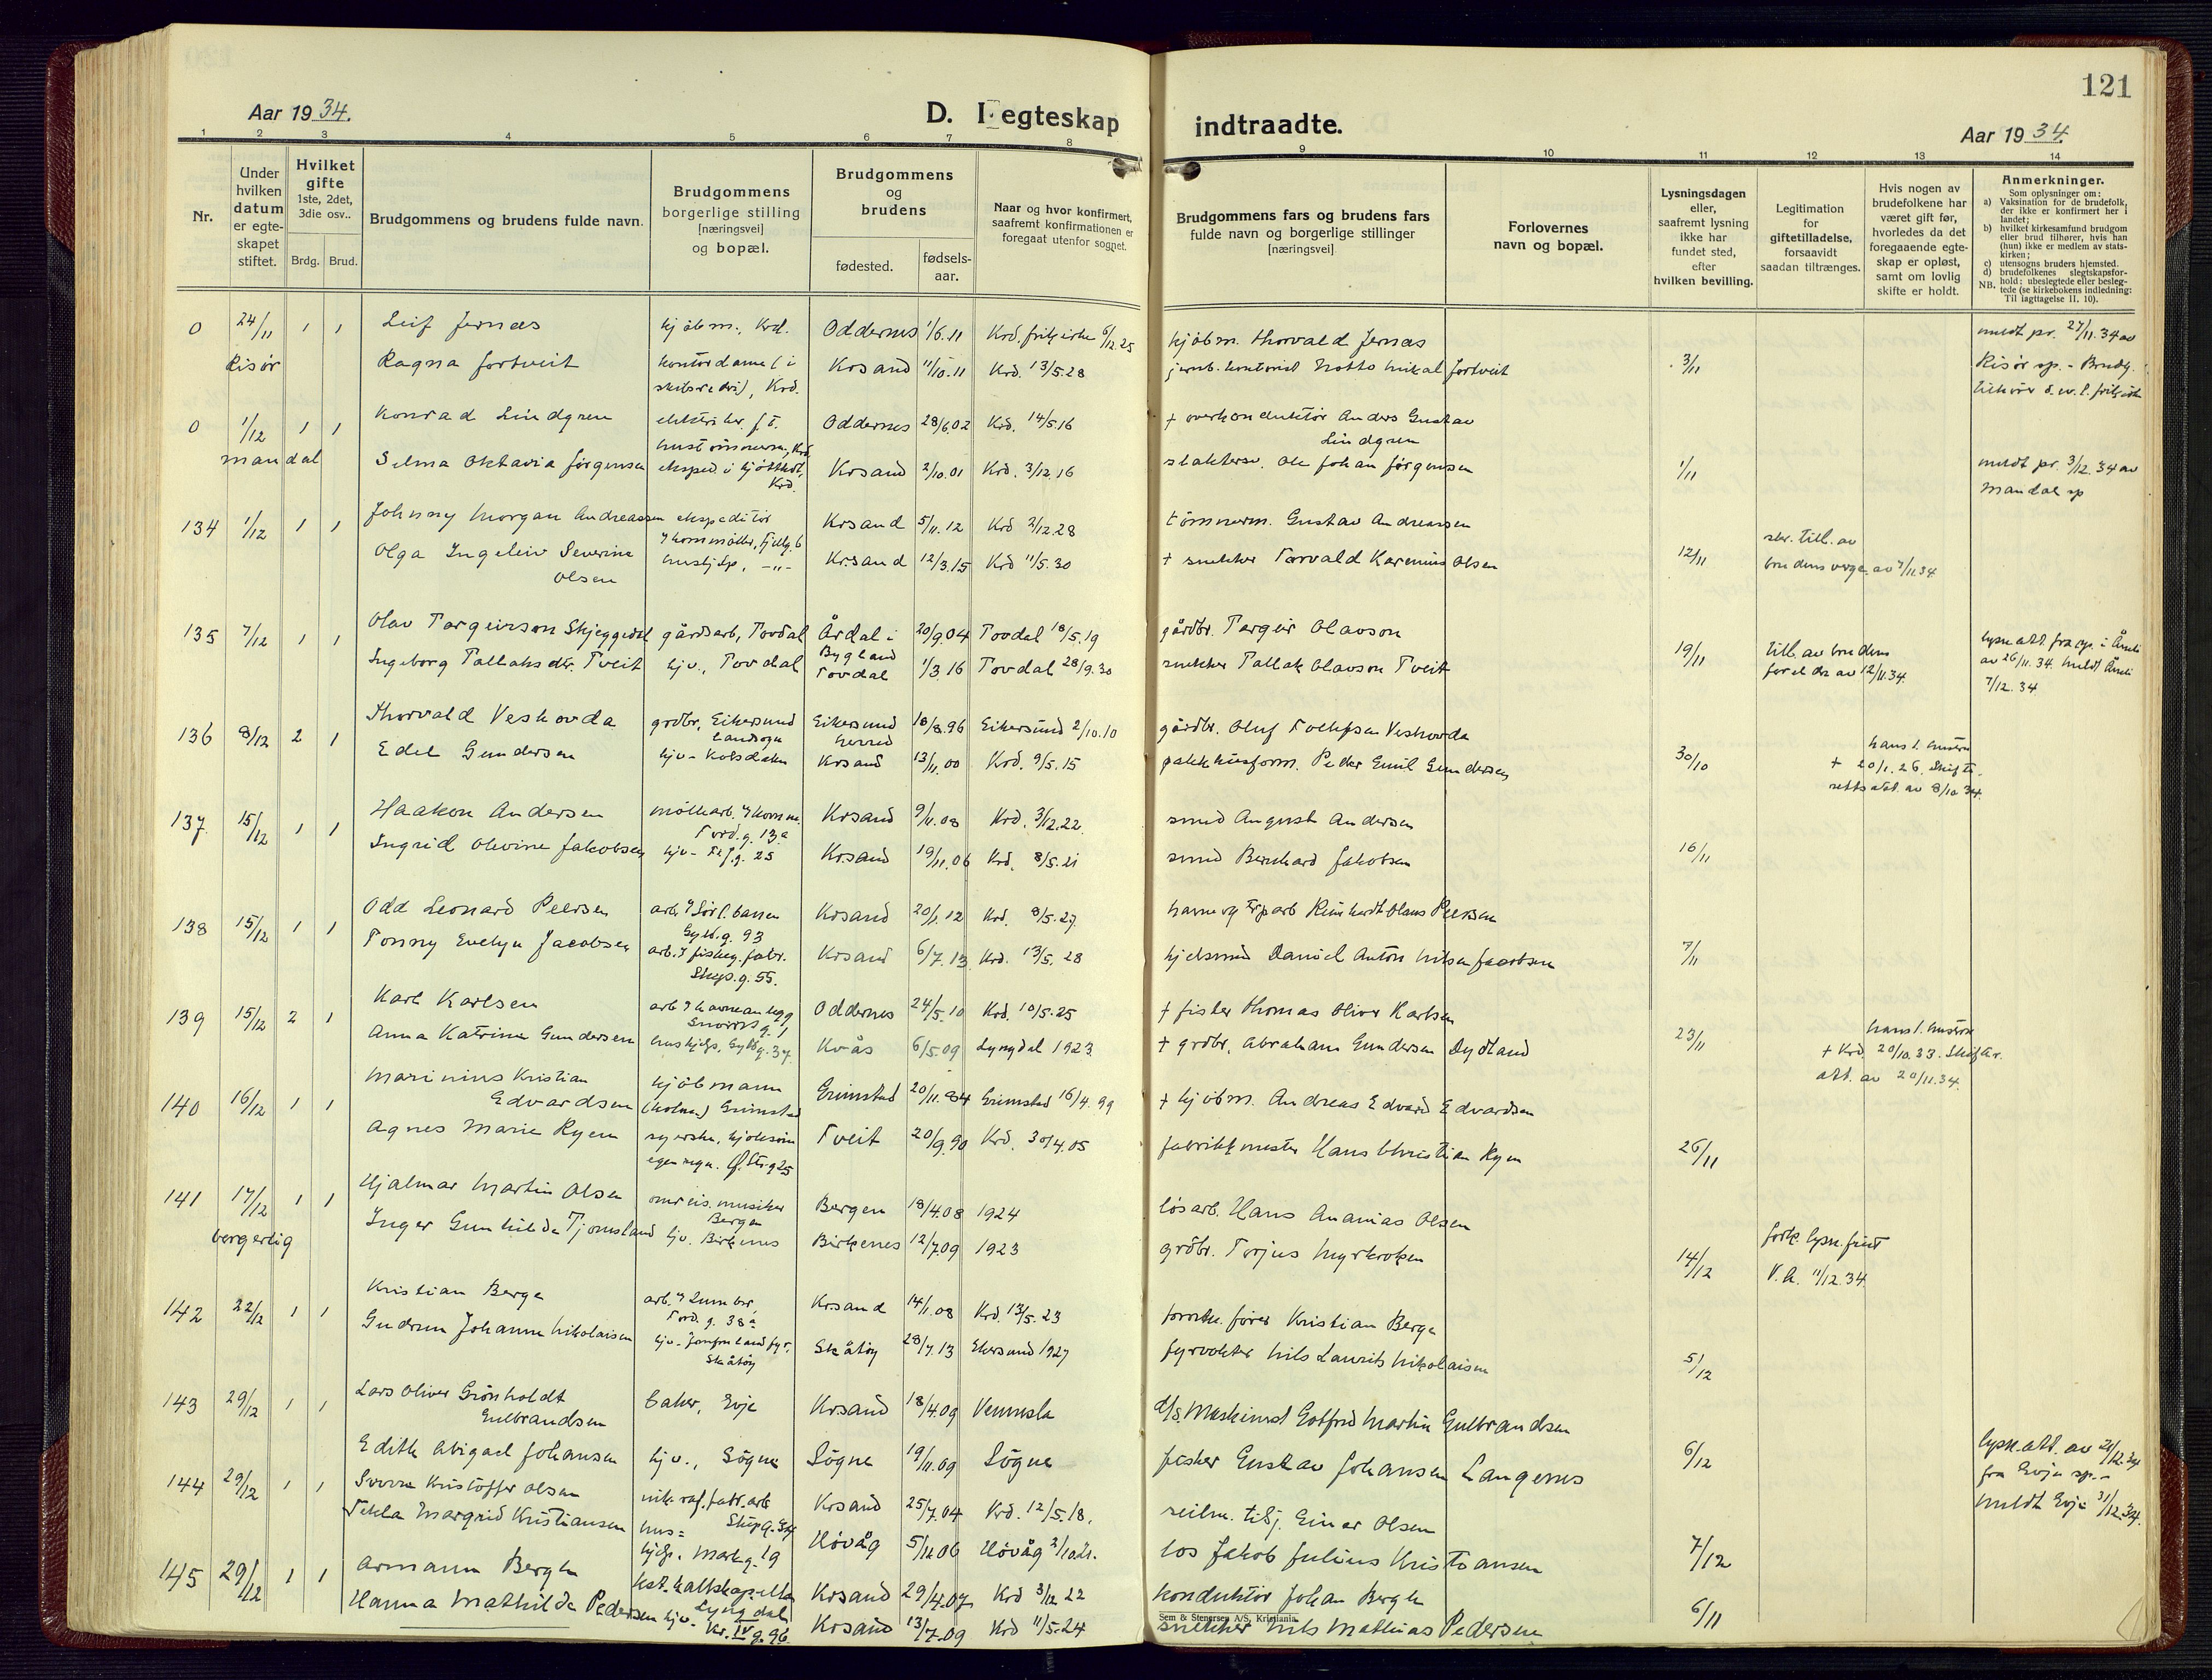 121
Aar 1934.
D. I egteskap indtraadte.
Aar 1934.
1 2 3 4 5 6 7 8 9 10 11 12 13 14
Nr.
Under hvilken datum er egteskapet stiftet.
Hvilket gifte 1ste, 2det, 3die osv..
Brdg. Brud.
Brudgommens og brudens fulde navn.
Brudgommens borgerlige stilling [næringsvei] og bopæl.
Brudgommens og brudens
fødested. fødsels-aar.
Naar og hvor konfirmert, saafremt konfirmationen er foregaat utenfor sognet.
Brudgommens fars og brudens fars fulde navn og borgerlige stillinger [næringsvei]
Forlovernes navn og bopæl.
Lysningsdagen eller, saafremt lysning ikke har fundet sted, efter hvilken bevilling.
Legitimation for giftetilladelse, forsaavidt saadan tiltrænges.
Hvis nogen av brudefolkene har været gift før, hvorledes da det foregaaende egteskap er opløst, samt om lovlig skifte er holdt.
Anmerkninger.
Som oplysninger om:
a) Vaksination for de brudefolk, der ikke er konfirmert her i landet;
b) hvilket kirkesamfund brudgom eller brud tilhører, hvis han (hun) ikke er medlem av statskirken;
c) utensogns bruders hjemsted.
d) brudefolkenes slegtskapsforhold: ubeslegtede eller beslegtede (se kirkebokens indledning: Til iagttagelse II, 10).
NB.
0 24/11 1 1 Leif Jernæs kjøbm., Krd. Oddernes 1/6.11 Krd. frikirke 6/12.25 kjøbm. Thorvald Jernæs meldt pr. 27/11.34 av
Risør Ragna Fortveit kontordame (i Krsand 11/10.11 Krd. 13/5.28 3/11 Risør sp. - Brudg.
Krd.
0 1/12 1 1 Konrad Lindgren Oddernes 28/6.02 Krd. 14/5.16 + overkonduktør Anders Gustav
Lindgren
Mandal Selma Oktavia Jørgensen eksped. i kjøttutv. Krsand 2/10.01 Krd. 3/12.16 Ole Johan Jørgensen 1/11 meldt pr. 3/12.34 av
Krd. Mandal sp
134 1/12 1 1 Johnny Morgan Andreassen ekspeditør Krsand 5/11.12 Krd 3/12.28 tømmerm. Gustav Andreassen
skr. till. av
Olga Ingeleiv Severine hushjelp, -"- Krsand 12/3.15 Krd 11/5.30 + snekker Torvald Karenius Olsen 12/11 brudens verge av 7/11 34
Olsen
135 7/12 1 1 Olav Torgeirson Skjeggedal gårdsarb, Tovdal Årdal i 20/9.04 Tovdal 18/5.19 gårdbr. Torgeir Olavson
Bygland
Ingeborg Tallaksdtr. Tveit hjv., Tovdal Tovdal 1/3.16 Tovdal 28/9.30 snekker Tallak Olavson Tveit 19/11 till. av brudens
foreldre av 12/11.34.
lysn. att. fra sp. i Åmli
av 26/11.34. meldt Åmli
7/12.34
136 8/12 2 1 Thorvald Veshovda grdbr, Eikersund Eikersund 18/8.96 Eikersund 2/10.10 gårdbr. Oluf Tollefsen Veshovda
landsogn herred
Edel Gundersen hjv - Kolsdalen Krsand 13/11.00 Krd. 9/5.15 pakkhusform. Peder Emil Gundersen 30/10 hans 1. hustru
+ 20/1.26. Skifte-
retts att. av 8/10 34.
137 15/12 1 1 Haakon Andersen møllearb. Krsand 9/11.08 Krd. 3/12.22. smed August Andersen
Tord.g. 13a
Ingrid Olevine Jakobsen hjv - 25 Krsand 19/11.06 Krd. 8/5.21 smed Bernhard Jakobsen 16/11
138 15/12 1 1 Odd Leonard Peersen Krsand 20/1.12 Krd. 8/5.27. Reinhardt Olaus Peersen
Gyld.g. 93
Tonny Evelyn Jacobsen Krsand 6/7.13 Krd. 13/5.28 kjelsmed Daniel Anton Nilsen Jacobsen 7/11
Skip.g. 55.
139 15/12 2 1 Karl Karlsen Oddernes 24/5.10 Krd. 10/5.25 + fisker Thomas Oliver Karlsen
Anna Katrine Gundersen hushjelp, Gyldg. 37. Kvås 6/5.09 Lyngdal 1923. + grdbr, Abraham Gundersen Dydland 23/11 hans 1. hustru
+ Krd. 20/10.33. Skifter.
att. av 20/11.34.
140 16/12 1 1 Marinius Kristian kjøbmann Grimstad 20/11.84 Grimstad 16/4.99 + kjøbm. Andreas Edvard Edvardsen
Edvardsen Grimstad
Agnes Marie Ryen syerske, Tveit 20/9.90 Krd. 30/4.05 fabrikkmester Hans Christian Ryen 26/11
141 17/12 1 1 Hjalmar Martin Olsen omreis. musiker Bergen 18/4.08 1924 løsarb. Hans Ananias Olsen
Bergen
borgerlig Inger Gunhilde Tjomsland hjv. Birkenes Birkenes 12/7.09 1923 grdbr. Torjus Myrkroken 14/12 V.A. 11/12.34
142 22/12 1 1 Kristian Berge Krsand 14/1.08 Krd. 13/5.23 Kristian Berge
Tord.g. 38a
Gudrun Johanne Nikolaisen hjv - Jomfruland fyr, Skåtøy 28/7.13 Ekersund 1927 fyrvokter Nils Laurits Nikolaisen 5/12
Skåtøy
143 29/12 1 1 Lars Oliver Grönholdt baker, Evje Krsand 18/4.09 Vennesla Gotfred Martin Gulbrandsen
Gulbrandsen
Edith Abigael Johansen hjv., Søgne Søgne 19/11.09 Søgne fisker Gustav Johansen Langenes 6/12 lysn. att. av
fra Evje sp. -
meldt Evje 31/12.34.
144 29/12 1 1 Sverre Kristoffer Olsen nik. raf. fabr. arb Krsand 25/7.04 Krd. 12/5.18. Einar Olsen
Tekla Margrid Kristiansen hus= Høvåg 5/12.06 Høvåg los Jakob Julius Kristiansen 7/12
hjelp. Markg. 19
145 29/12 1 1 Armann Bergh Krsand 29/4.07. Krd 3/12 22 konduktør Johan Bergh
Lyngdal
Hanna Mathilde Pedersen hjv - Krsand 13/7.09 Krd 11/5.24 snekker Nils Mathias Pedersen 6/11
Kr. IV g. 96
Sem & Stenersen A/S, Kristiania.